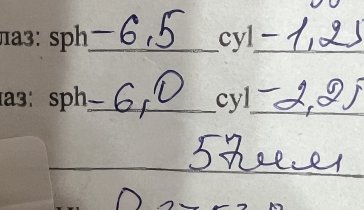 лаз: sph -6,5 cyl -1,25
лаз: sph -6,0 cyl -2,25
57мм